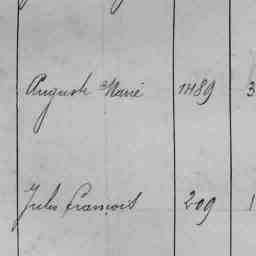 Auguste Marie 1489 3
Jules François 209 1